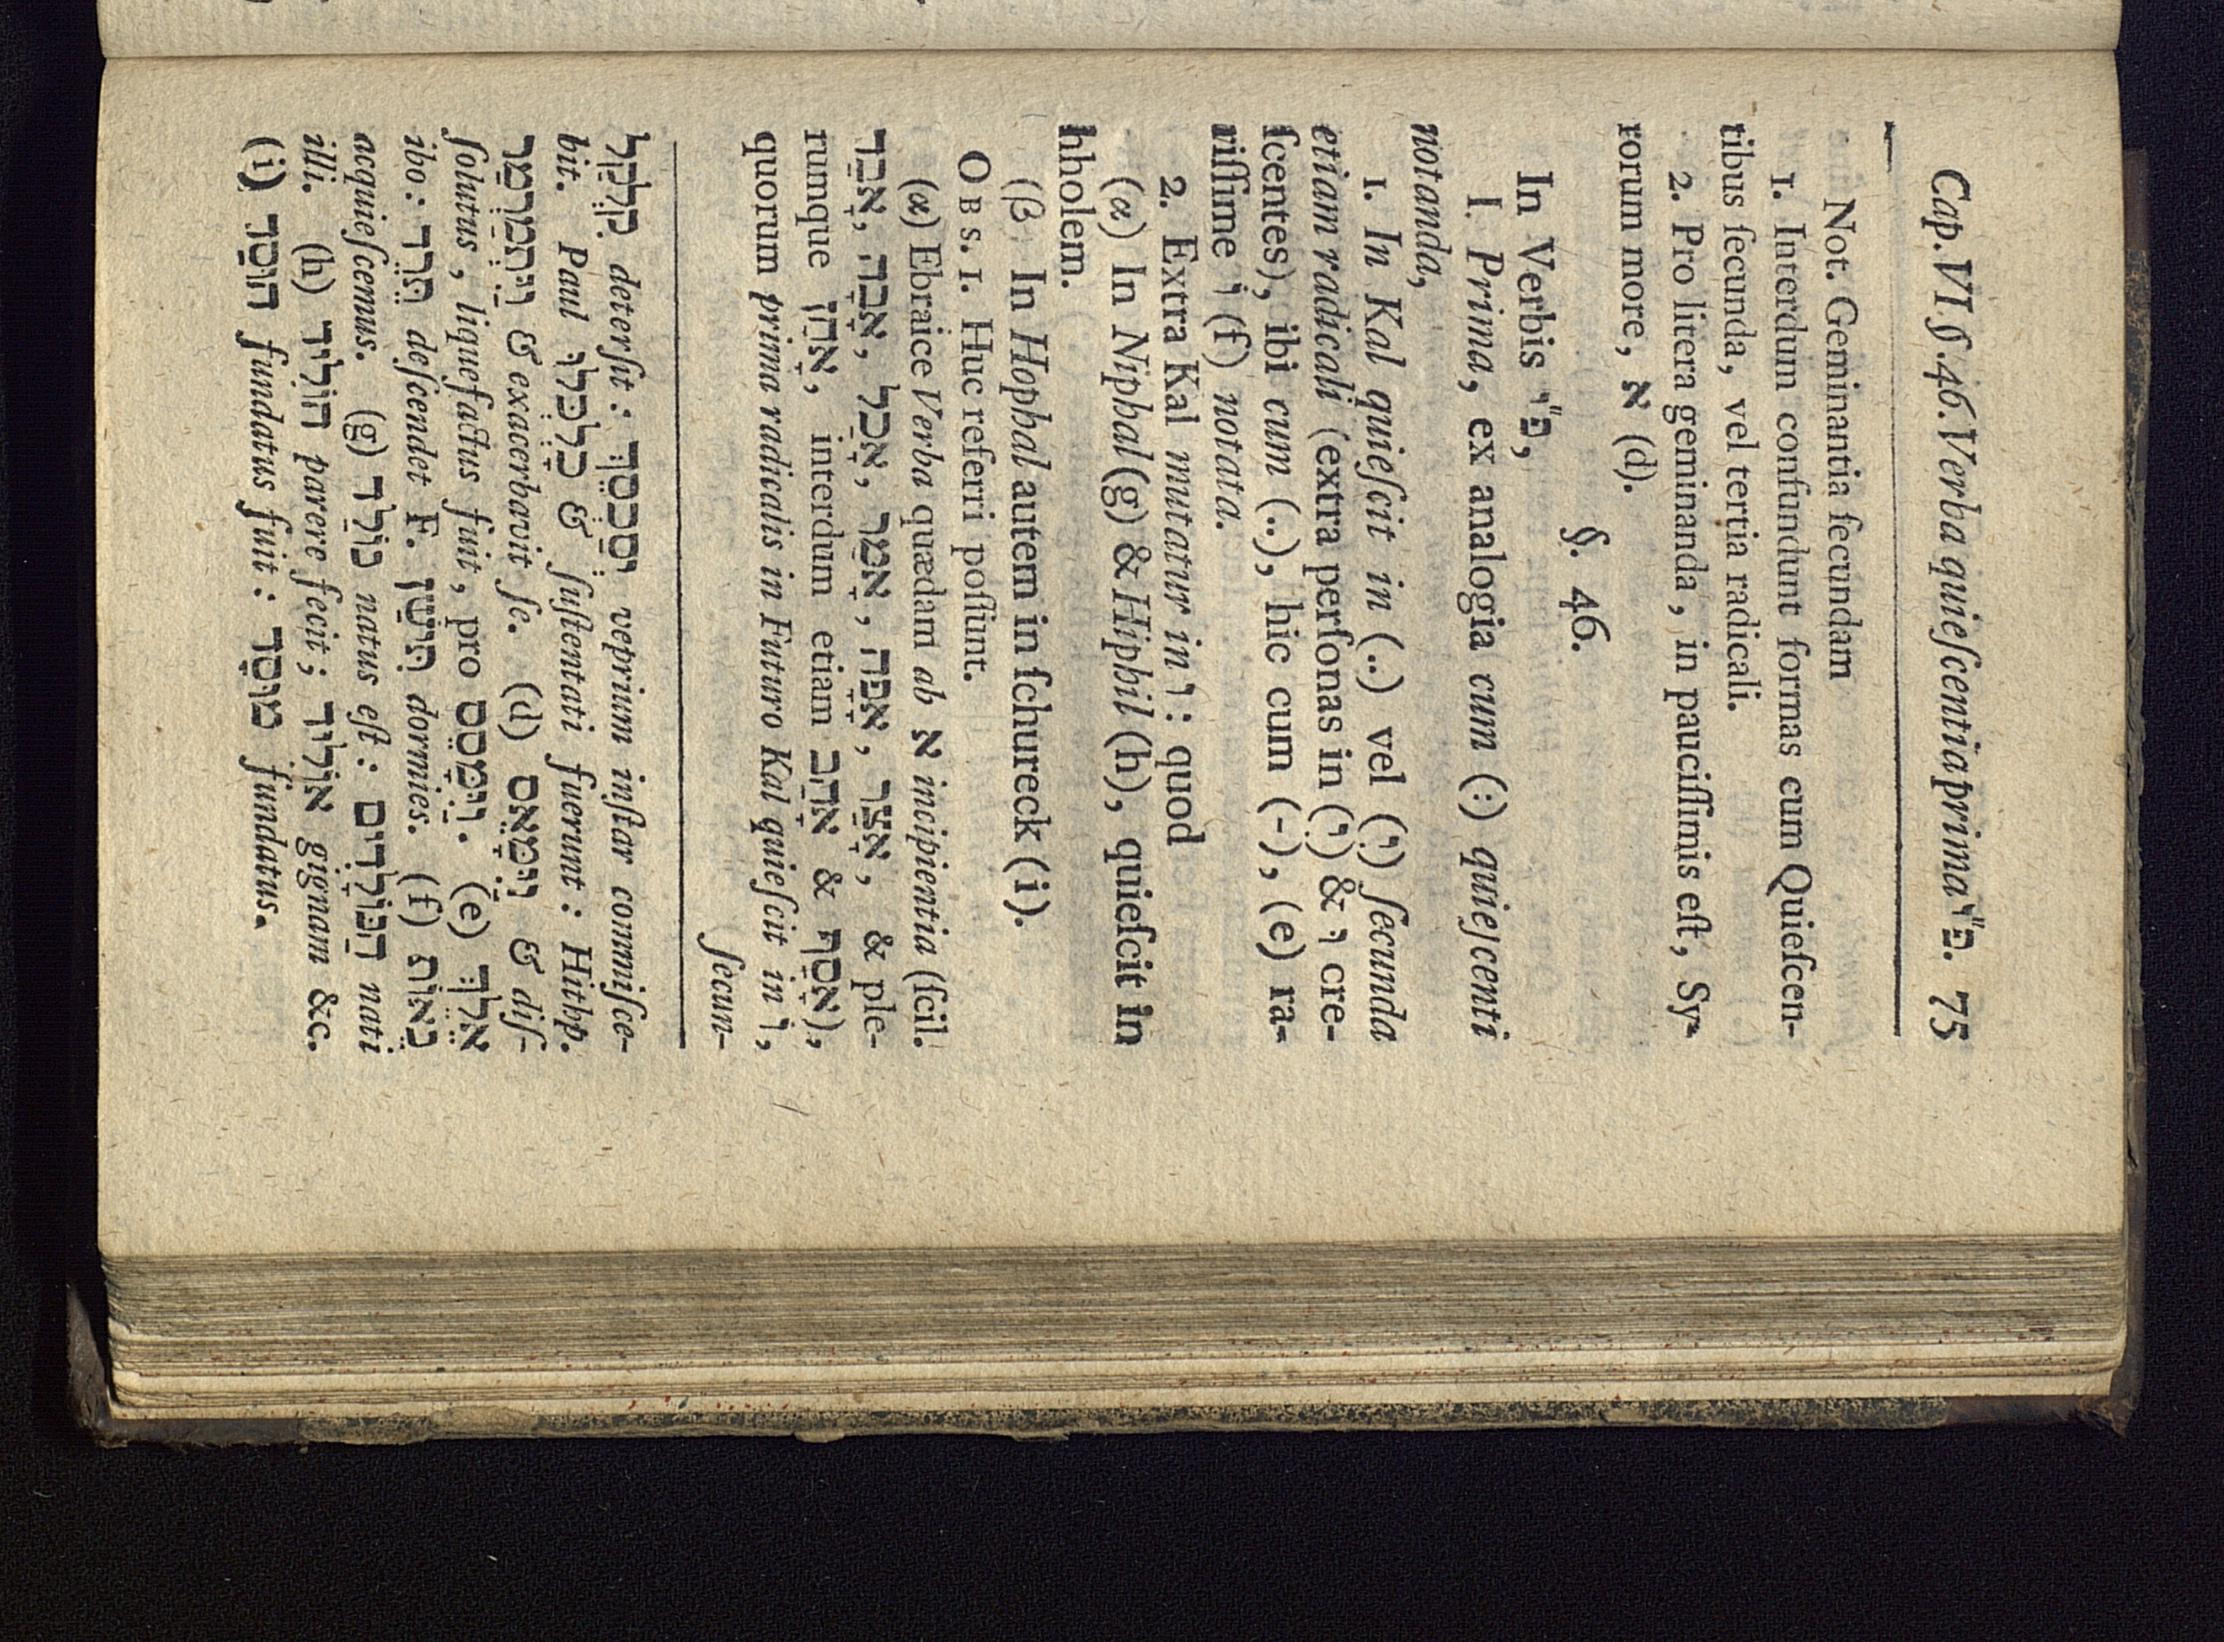 Cap. VI. §. 46. Verba quieſcentia prima פ״י. 75
Not. Geminantia ſecundam
1. Interdum confundunt formas cum Quieſcen-
tibus ſecunda, vel tertia radicali.
2. Pro litera geminanda, in pauciſſimis eſt, Sy-
rorum more, א (d).
§. 46.
In Verbis פ״י,
I. Prima, ex analogia cum (:) quieſcenti
notanda,
1. In Kal quieſcit in (..) vel (יִ) ſecunda
etiam radicali (extra perſonas in (יִ) & וּ cre-
ſcentes), ibi cum (..), hic cum (-), (e) ra-
riſſime וֹ (f) notata.
2. Extra Kal mutatur in ו: quod
(α) In Niphal (g) & Hiphil (h), quieſcit in
hholem.
(β) In Hophal autem in ſchureck (i).
OBS. 1. Huc referri poſſunt.
(α) Ebraice Verba quædam ab א incipientia (ſcil.
אָבַד, אָבָה, אָכַל, אָמַר, אָפָה, אָצַר, & ple-
rumque אָחַז, interdum etiam אָהַב & אָסַף),
quorum prima radicalis in Futuro Kal quieſcit in וֹ,
ſecun-
קִלְקַל deterſit: יְסַכְסֵךְ veprium inſtar commiſce-
bit. Paul כֻּלְכְּלוּ & ſuſtentati fuerunt: Hithp.
וַיִּתְמַרְמַר & exacerbavit ſe. (d) וַיִּמָּאֵס & diſ-
ſolutus, liquefactus fuit, pro וַיִּמָּסֵס. (e) אֵלֵךְ
ibo: תֵּרֵד deſcendet F. תִּישַׁן dormies. (f) נֵאוֹת
acquieſcemus. (g) נוֹלַד natus eſt: הַנּוֹלָדִים nati
illi. (h) הוֹלִיד parere fecit; אוֹלִיד gignam &c.
(i) הוּסַד fundatus fuit: מוּסָד fundatus.